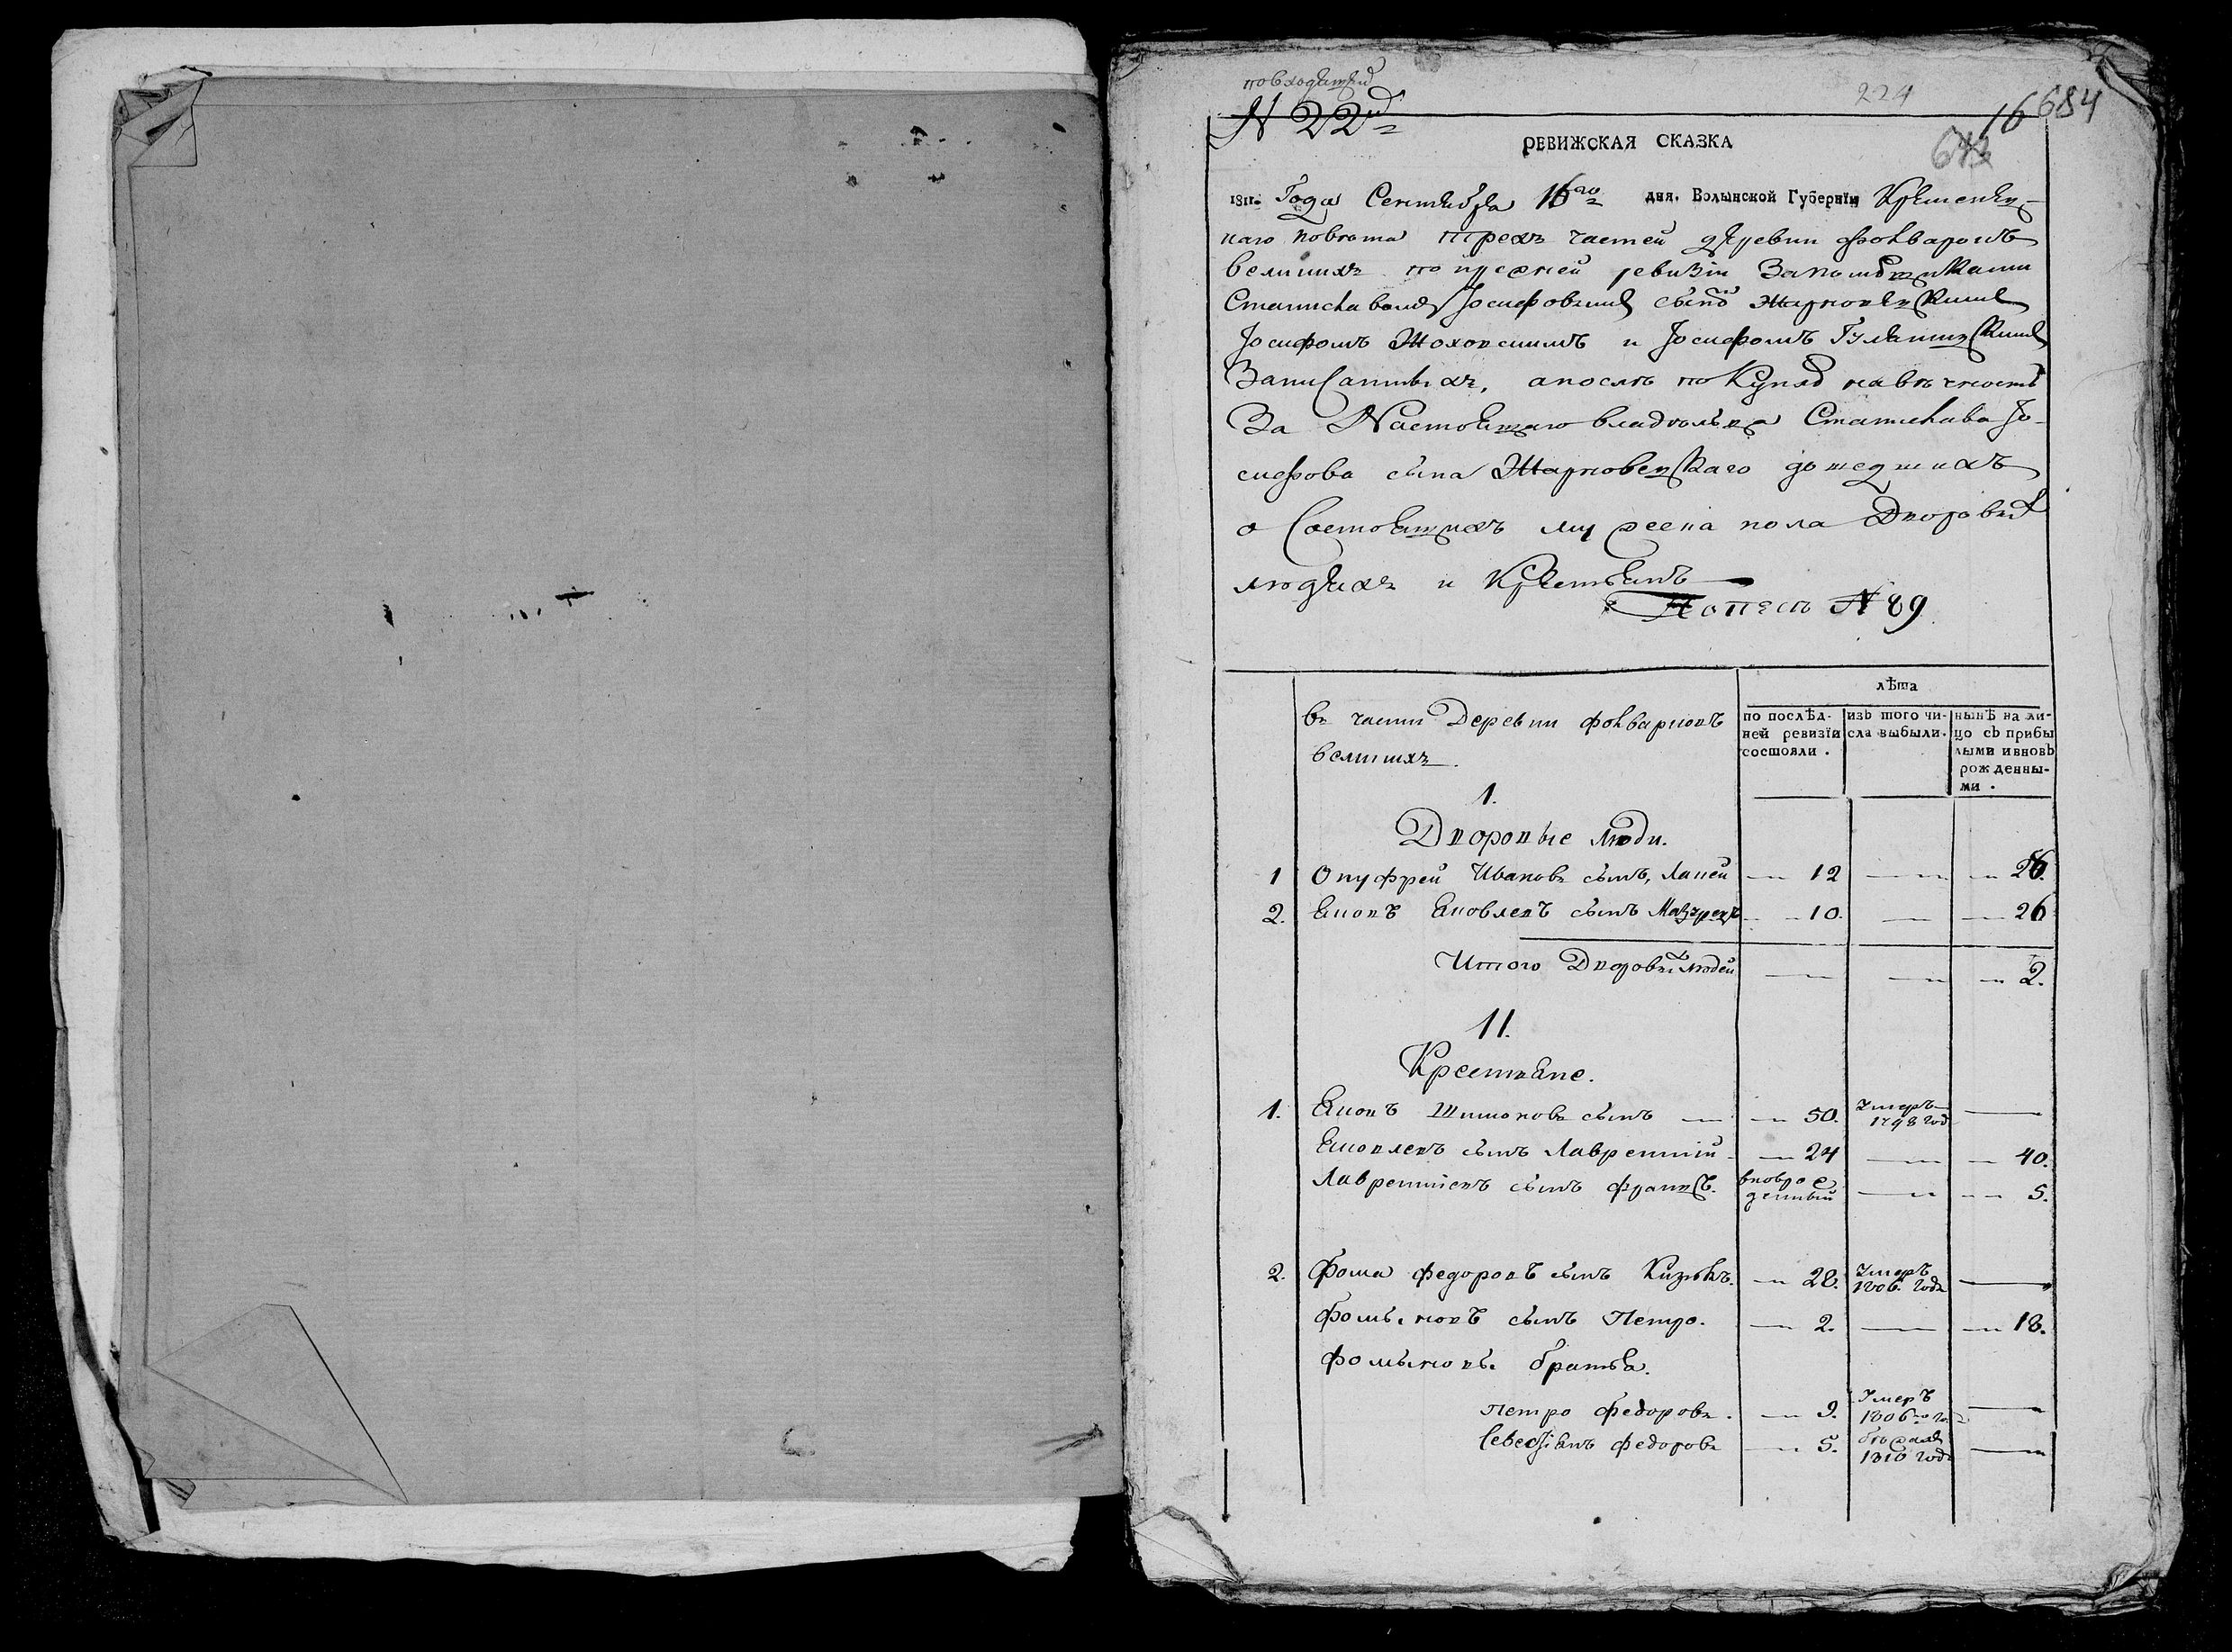 повходящей
N 22й
224
16 684
РЕВИЖСКАЯ СКАЗКА
1811. Года Сентября 16го дня. Волынской Губернїи Кременец-
каго повѣта трехъ частей деревни Фольварковъ
великихъ по прежней ревизіи За помѣщиками
Станиславомъ Іосифовымъ сыномъ Жарковецкимъ
Іосифомъ Жоховскимъ и Іосифомъ Гуляницкимъ
Записанныхъ, апослѣ по Куплѣ навѣчность
За Настоящаго владѣльца Станислава Іо-
сифова сына Жарковецкаго дошедшихъ
о Состоящихъ мужеска пола Дворовыхъ
людяхъ и Крестьянъ
N 89
въ части Деревни фольварковъ
великихъ.
лѣта
по послѣд-
ней ревизїи
состояли.
изъ того чи-
сла выбыли.
нынѣ на ли-
цо съ прибы
лыми ивновь
рожденны-
ми.
1.
Дворовые люди.
1 Онуфрей Ивановъ сынъ, Лапей — 12 — — 26.
2. Яковъ Яковлевъ сынъ — 10. — — 26
Итого Дворовыхъ людей — — — 2.
11.
Крестьяне.
1. Яковъ Шимоновъ сынъ — — 50. Умеръ 1798 год —
Яковлевъ сынъ Лаврентій — 24 — — 40.
Лаврентіевъ сынъ Францъ. вноврож денный — — 5.
2. Фома Федоровъ сынъ Кизюкъ. — 28. Умеръ 1806. года —
Фомыновъ сынъ Петро. — 2. — — 18.
Фомыновы братья.
Петро Федоровъ. — 9. Умеръ 1806го го —
Севастіянъ Федоровъ — 5. бѣжалъ 1810 года —